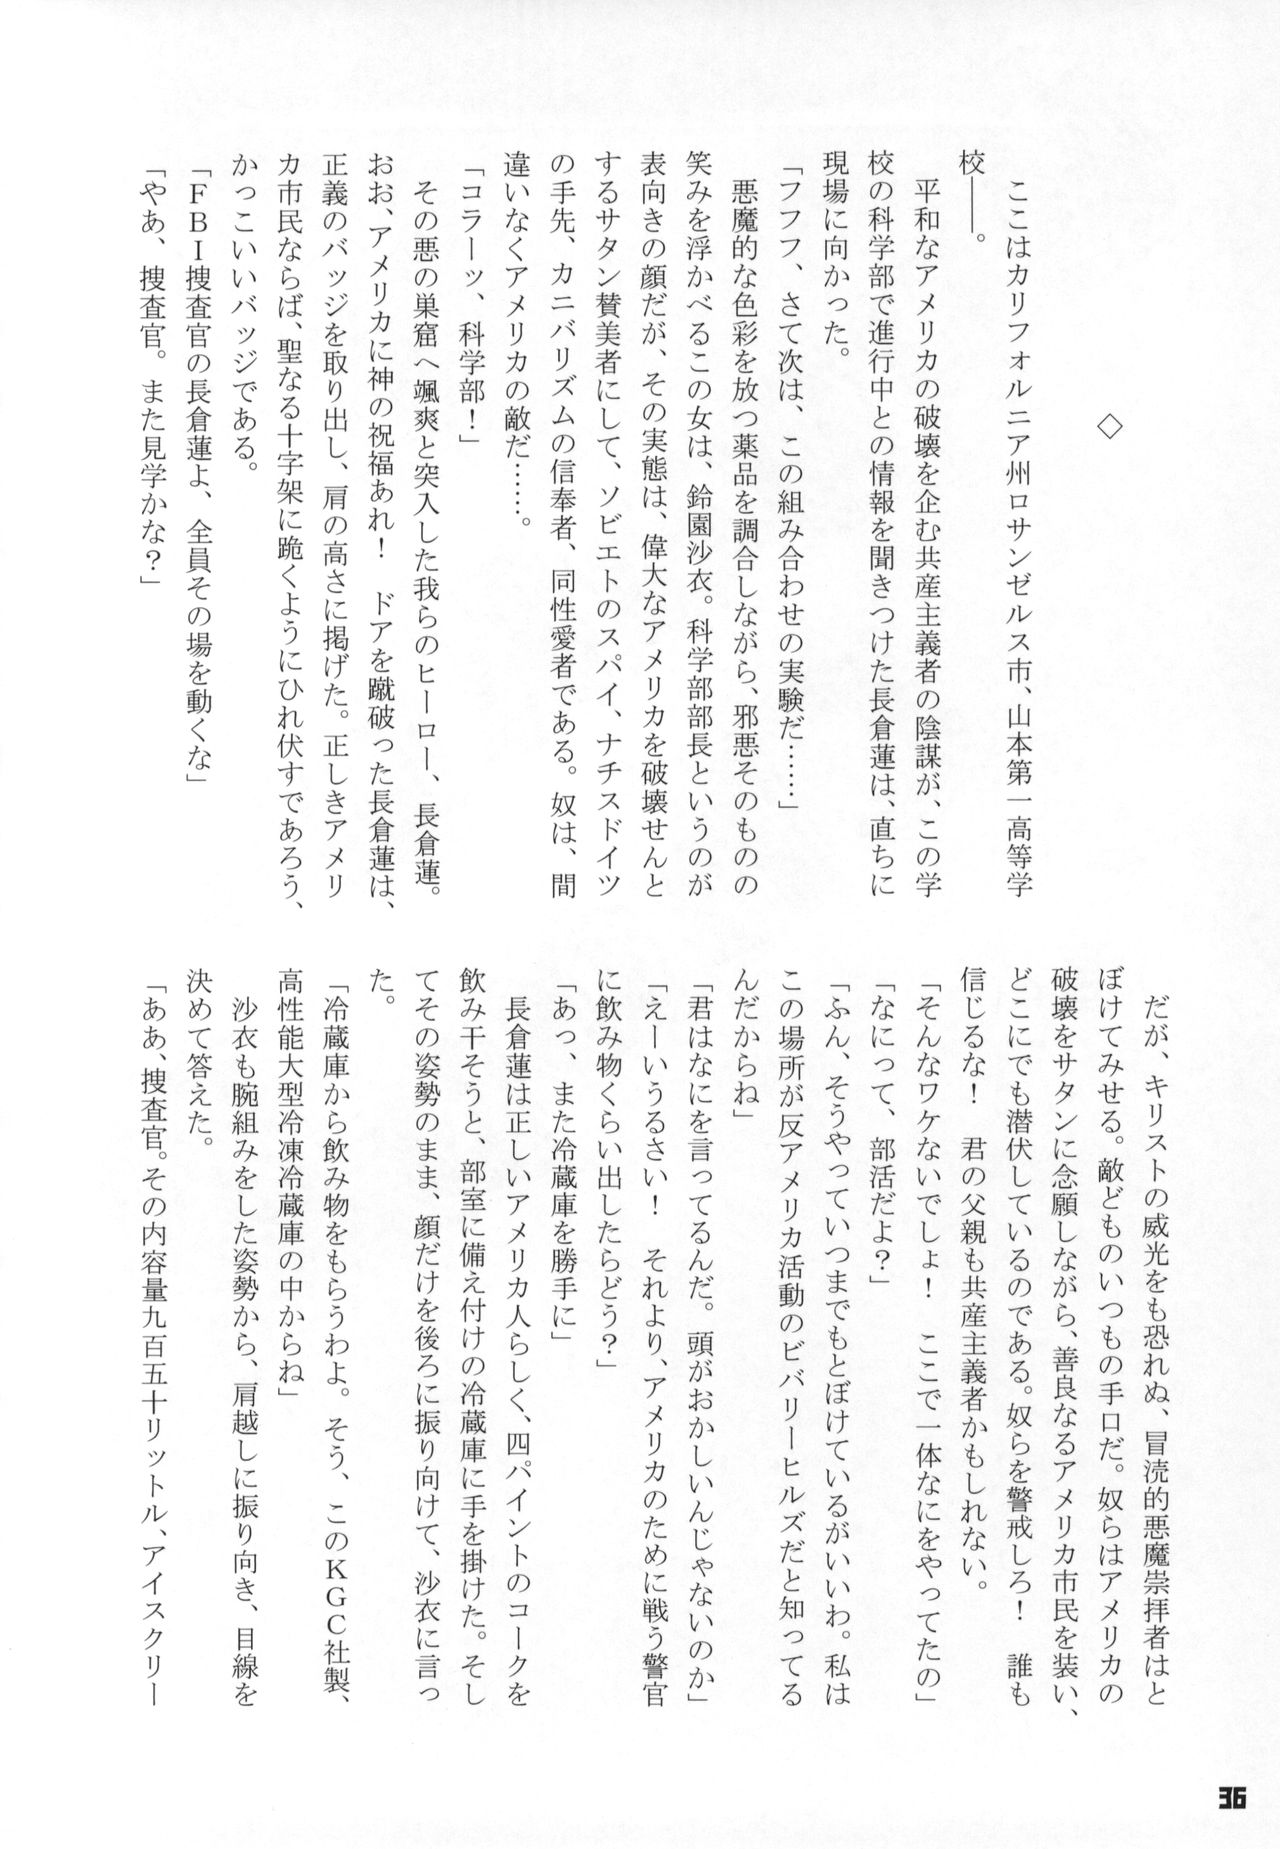 ◇
　ここはカリフォルニア州ロサンゼルス市、山本第一高等学
校――。
　平和なアメリカの破壊を企む共産主義者の陰謀が、この学
校の科学部で進行中との情報を聞きつけた長倉蓮は、直ちに
現場に向かった。
「フフフ、さて次は、この組み合わせの実験だ……」
　悪魔的な色彩を放つ薬品を調合しながら、邪悪そのものの
笑みを浮かべるこの女は、鈴園沙衣。科学部部長というのが
表向きの顔だが、その実態は、偉大なアメリカを破壊せんと
するサタン賛美者にして、ソビエトのスパイ、ナチスドイツ
の手先、カニバリズムの信奉者、同性愛者である。奴は、間
違いなくアメリカの敵だ……。
「コラーッ、科学部！」
　その悪の巣窟へ颯爽と突入した我らのヒーロー、長倉蓮。
おお、アメリカに神の祝福あれ！　ドアを蹴破った長倉蓮は、
正義のバッジを取り出し、肩の高さに掲げた。正しきアメリ
カ市民ならば、聖なる十字架に跪くようにひれ伏すであろう、
かっこいいバッジである。
「ＦＢＩ捜査官の長倉蓮よ、全員その場を動くな」
「やあ、捜査官。また見学かな？」
　だが、キリストの威光をも恐れぬ、冒涜的悪魔崇拝者はと
ぼけてみせる。敵どものいつもの手口だ。奴らはアメリカの
破壊をサタンに念願しながら、善良なるアメリカ市民を装い、
どこにでも潜伏しているのである。奴らを警戒しろ！　誰も
信じるな！　君の父親も共産主義者かもしれない。
「そんなワケないでしょ！　ここで一体なにをやってたの」
「なにって、部活だよ？」
「ふん、そうやっていつまでもとぼけているがいいわ。私は
この場所が反アメリカ活動のビバリーヒルズだと知ってる
んだからね」
「君はなにを言ってるんだ。頭がおかしいんじゃないのか」
「えーいうるさい！　それより、アメリカのために戦う警官
に飲み物くらい出したらどう？」
「あっ、また冷蔵庫を勝手に」
　長倉蓮は正しいアメリカ人らしく、四パイントのコークを
飲み干そうと、部室に備え付けの冷蔵庫に手を掛けた。そし
てその姿勢のまま、顔だけを後ろに振り向けて、沙衣に言っ
た。
「冷蔵庫から飲み物をもらうわよ。そう、このＫＧＣ社製、
高性能大型冷凍冷蔵庫の中からね」
　沙衣も腕組みをした姿勢から、肩越しに振り向き、目線を
決めて答えた。
「ああ、捜査官。その内容量九百五十リットル、アイスクリー
36